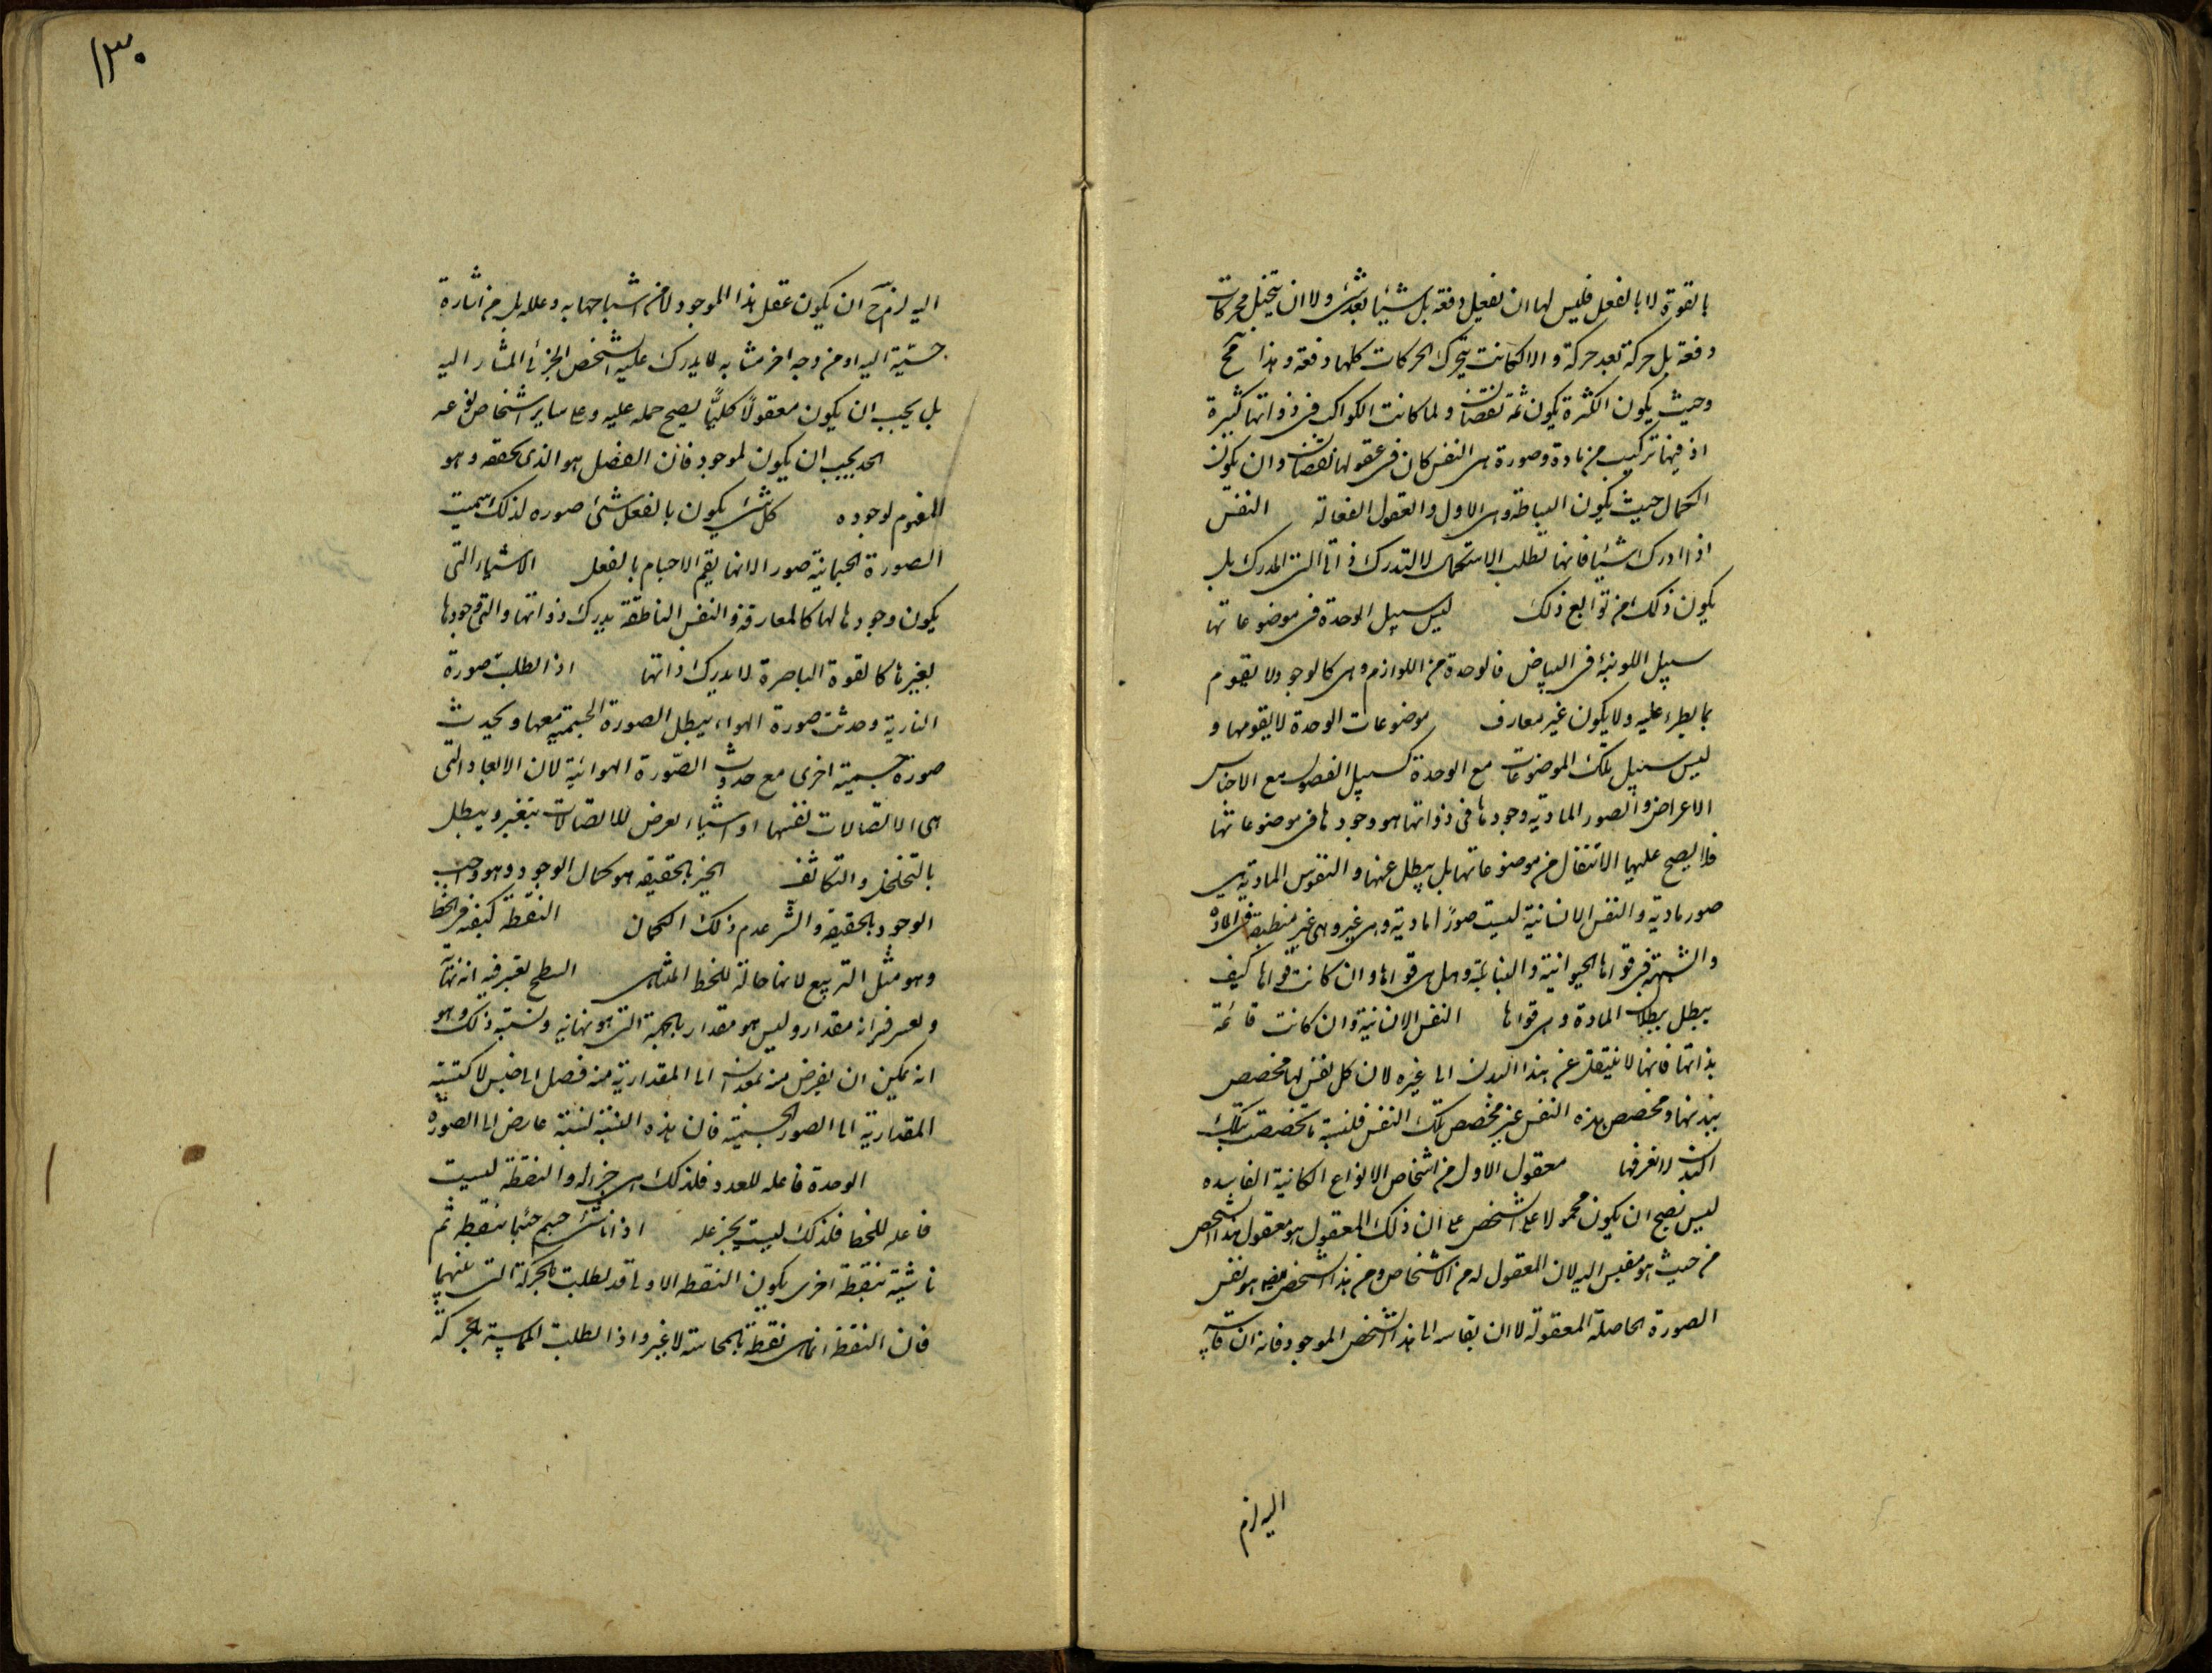 بالقوة لا بالفعل فليس لها ان تفعل دفعة بل شيئا بعد شئ ولا ان تتخيل محركات
دفعة بل حركة بعد حركة والا لكانت تتحرك الحركات كلها دفعة وهذا مح
وحيث يكون الكثرة يكون ثمة نقصان ولما كانت الكواكب فى ذواتها كثيرة
اذ فيها تركيب من مادة وصورة هى النفس كان فى عقولها نقصان وان يكون
الكمال حيث يكون البساطة وهى الاول والعقول الفعالة النفس
اذا ادرك شيئا فانها تطلب الاستكمال لا لتدرك ذات الشئ المدرك بل
يكون ذلك من توابع ذلك ليس سبيل الوحدة فى موضوعاتها
سبيل اللونية فى البياض فالوحدة من اللوازم وهى كالوجود لا يقوم
بما يطرء عليه ولا يكون غير مفارق موضوعات الوحدة لا يقومها و
ليس سبيل تلك الموضوعات مع الوحدة كسبيل الفصول مع الاجناس
الاعراض والصور المادية وجودها فى ذواتها هو وجودها فى موضوعاتها
فلا يصح عليها الانتقال من موضوعاتها بل يبطل عنها والنفوس المادية هى
صور مادية والنفس الانسانية ليست صورًا مادية وهى غير وهى غير منطبعة فى المادة
والشبهة فى قواها الحيوانية والنباتية وهل هى قواها وان كانت قواها كيف
يبطل ببطلان المادة وهى قواها النفس الانسانية وان كانت قائمة
بذاتها فانها لا ينتقل عن هذا البدن الى غيره لان كل نفس لها مخصص
ببدنها ومخصص هذه النفس غير مخصص تلك النفس فلنسبة ما تخصصت بتلك
البدن لا نعرفها معقول الاول من اشخاص الانواع الكائنة الفاسده
ليس يصح ان يكون محمولا على الشخص على ان ذلك المعقول هو معقول هذا الشخص
من حيث هو مقيس اليه لان المعقول له من الاشخاص ومن هذا الشخص هو نفس
الصورة الحاصلة المعقولة لا ان يقاس الى هذا الشخص الموجود فانه ان قايسه
اليه لزم
١٣٠
اليه لزم ح ان يكون عقل هذا الموجود لا من اسبابه وعلله بل من اشارة
حسّية اليه او من وجه اخر مشابه لا يدرك عليه الشخص الجزئى المشار اليه
بل يجب ان يكون معقولًا كليًّا يصح حمله عليه وعلى ساير اشخاص نوعه
الحد يجب ان يكون لموجود فان الفصل هو الذى يحققه وهو
المقوم لوجوده كل شئ يكون بالفعل شئ صوره لذلك سميت
الصورة الجسمانية صور الانها يقم الاجسام بالفعل الاشياء التى
يكون وجودها لها كالمفارقة والنفس الناطقة يدرك ذواتها والتى وجودها
لغيرها كالقوة الباصرة لا يدرك ذاتها اذا بطلت صورة
النارية وحدثت صورة الهواء يبطل الصورة الجسمية معها ويحدث
صورة جسمية اخرى مع حدوث الصّورة الهوائية لان الابعاد التى
هى الاتصالات نفسها او اشياء يعرض للاتصالات يتغير ويبطل
بالتخلخل والتكاثف الخير بالحقيقة هو كمال الوجود وهو واجب
الوجود بالحقيقة والشّر عدم ذلك الكمال النقطة كيفية فى الخط
وهو مثل التربيع لانها حالة للخط المتناهى السطح يعتبر فيه انه نهاية
ويعتبر فيه انه مقدار وليس هو مقدار بالجهة التى هو نهاية ونسبة ذلك وهو
انه يمكن ان يفرض فيه بعدان الى المقدارية نسبة فصل الى جنس لا كنسبة
المقدارية الى الصور الجسمية فان هذه النسبة نسبة عارض الى الصورة
الوحدة فاعله للعدد فلذلك هى جزاله والنقطة ليست
فاعله للخط فلذلك ليست بجزء له اذا ماس جسم جسما بنقطة ثم
ماسّه بنقطة اخرى يكون النقطة الاولى قد بطلت بالحركة التى بينهما
فان النقطة انما هى نقطة بالمماسة لا غير واذا بطلت المماسة بالحركة